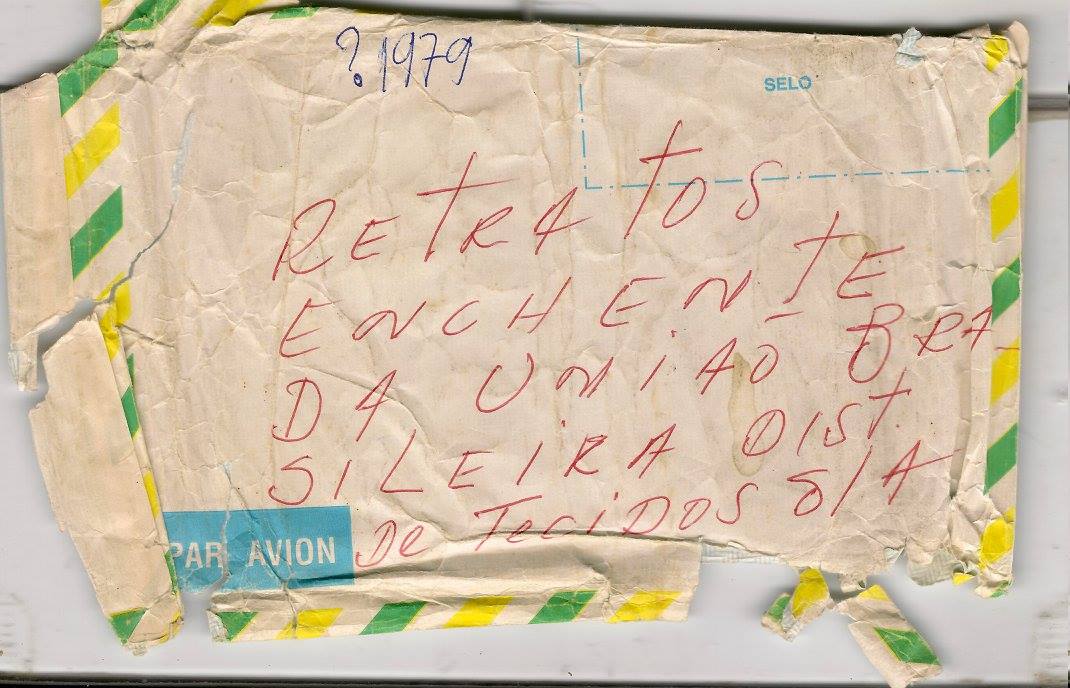 ? 1979
SELO
RETRATOS
ENCHENTE
DA UNIÃO BRA-
SILEIRA DIST.
De TeciDOS S/A
PAR AVION